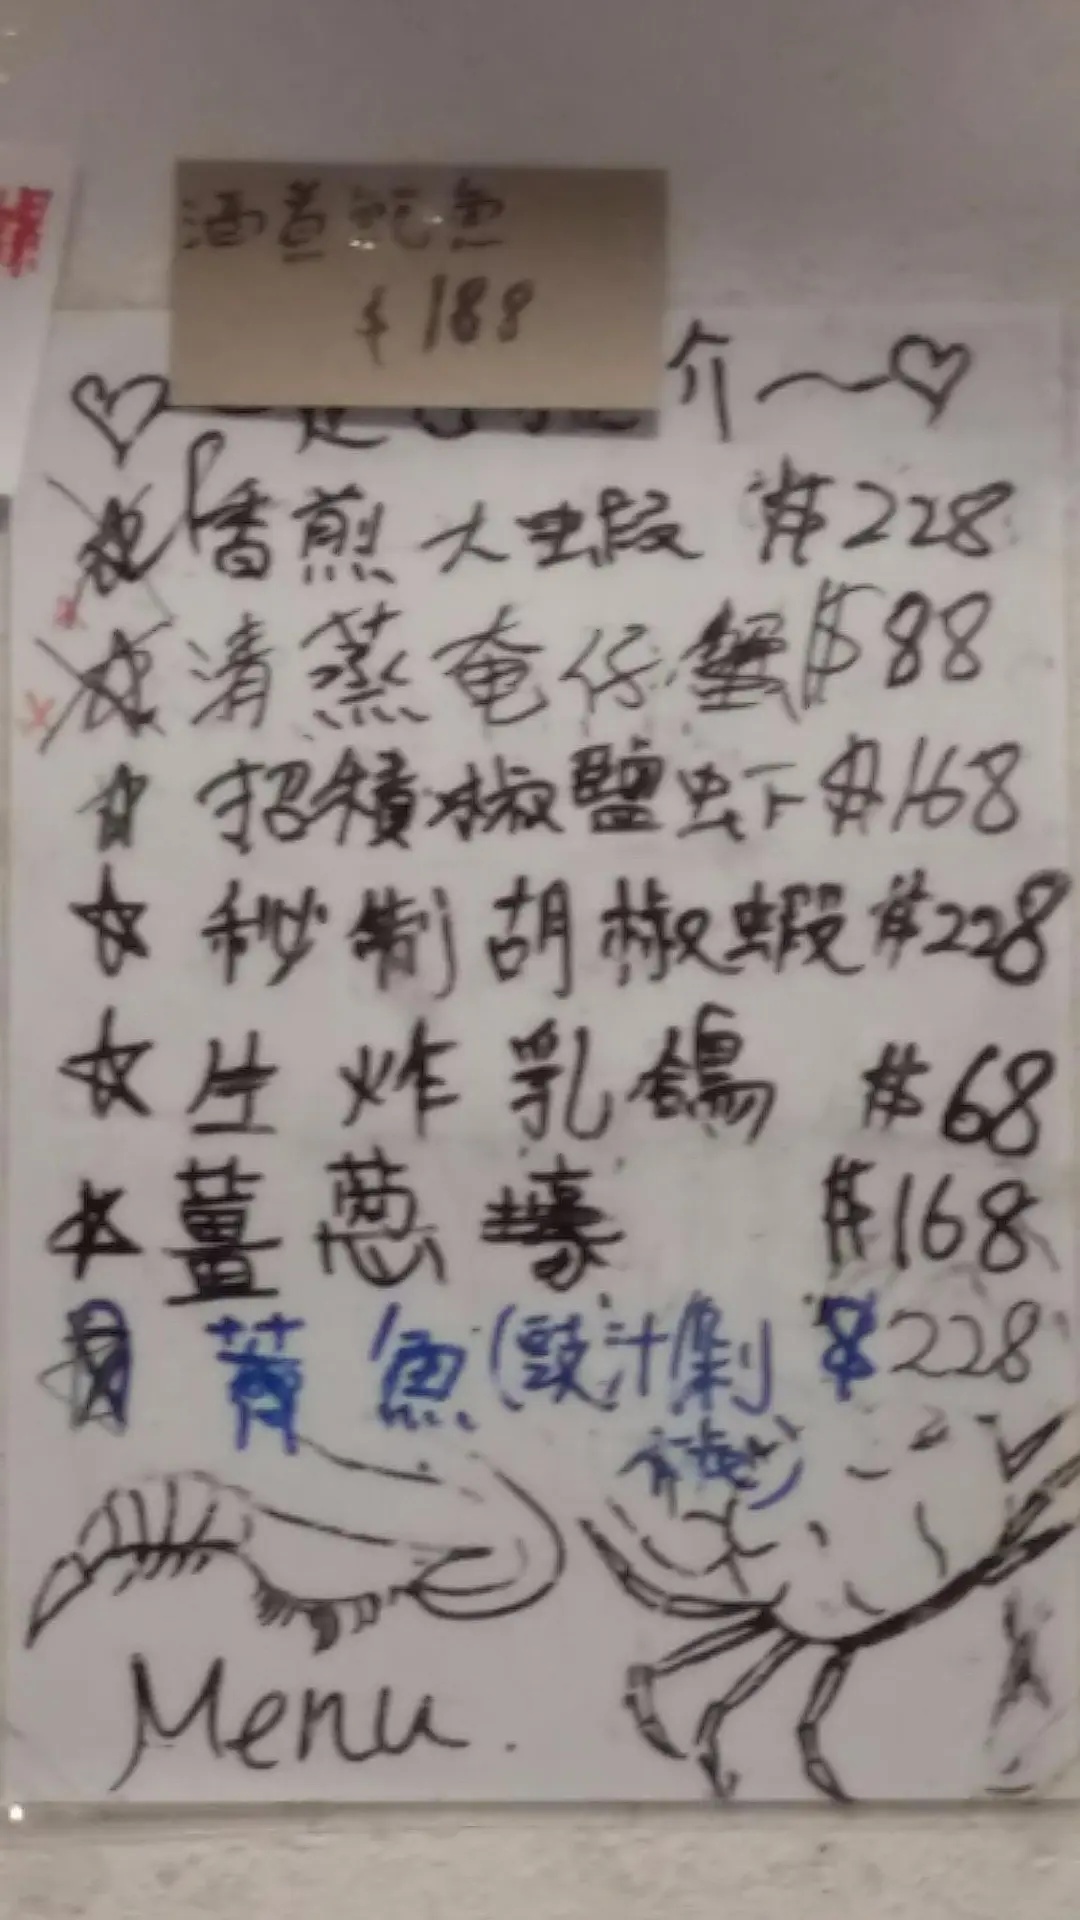 酒煮鮑魚
$188
介
香煎大蝦 $228
清蒸奄仔蟹 $88
招積椒鹽虾 $168
秘制胡椒蝦 $228
生炸乳鴿 $68
薑蔥蠔 $168
魚(豉汁剁 $228
椒)
Menu.